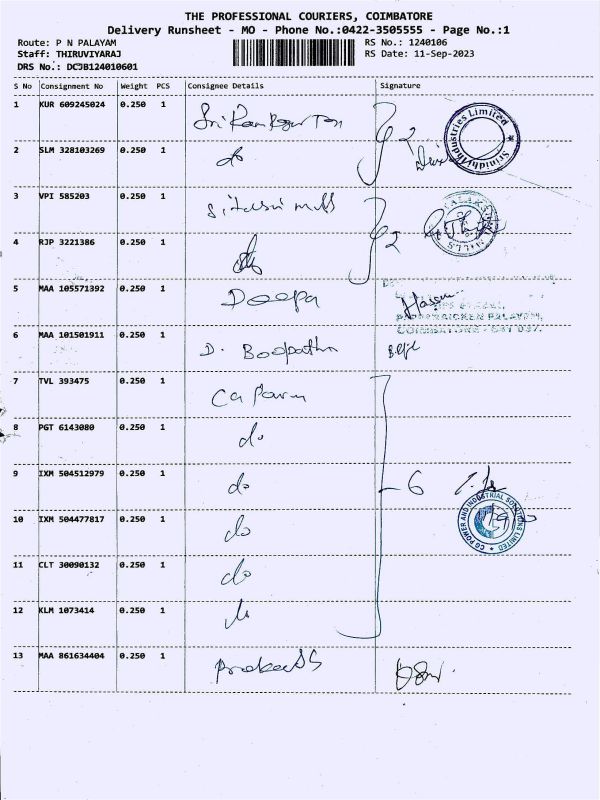 THE PROFESSIONAL COURIERS, COIMBATORE
Delivery Runsheet - MO - Phone No.:0422-3505555 - Page No.:1
Route: P N PALAYAM
Staff: THIRUVIYARAJ
DRS No.: DCJB124010601
RS No.: 1240106
RS Date: 11-Sep-2023
S No Consignment No Weight PCS Consignee Details Signature
1 KUR 609245024 0.250 1
2 SLM 328103269 0.250 1 do
3 VPI 585203 0.250 1
4 RJP 3221386 0.250 1
5 MAA 105571392 0.250 1 Deepa
6 MAA 101501911 0.250 1 D. Boopathi
7 TVL 393475 0.250 1
8 PGT 6143080 0.250 1 do
9 IXM 504512979 0.250 1 do
10 IXM 504477817 0.250 1 do
11 CLT 30090132 0.250 1 do
12 KLM 1073414 0.250 1 do
13 MAA 861634404 0.250 1
2
Srinidhi Industries Limited
2
MILLS
COIMBATORE - 641 037.
6
CG POWER AND INDUSTRIAL SOLUTIONS LIMITED